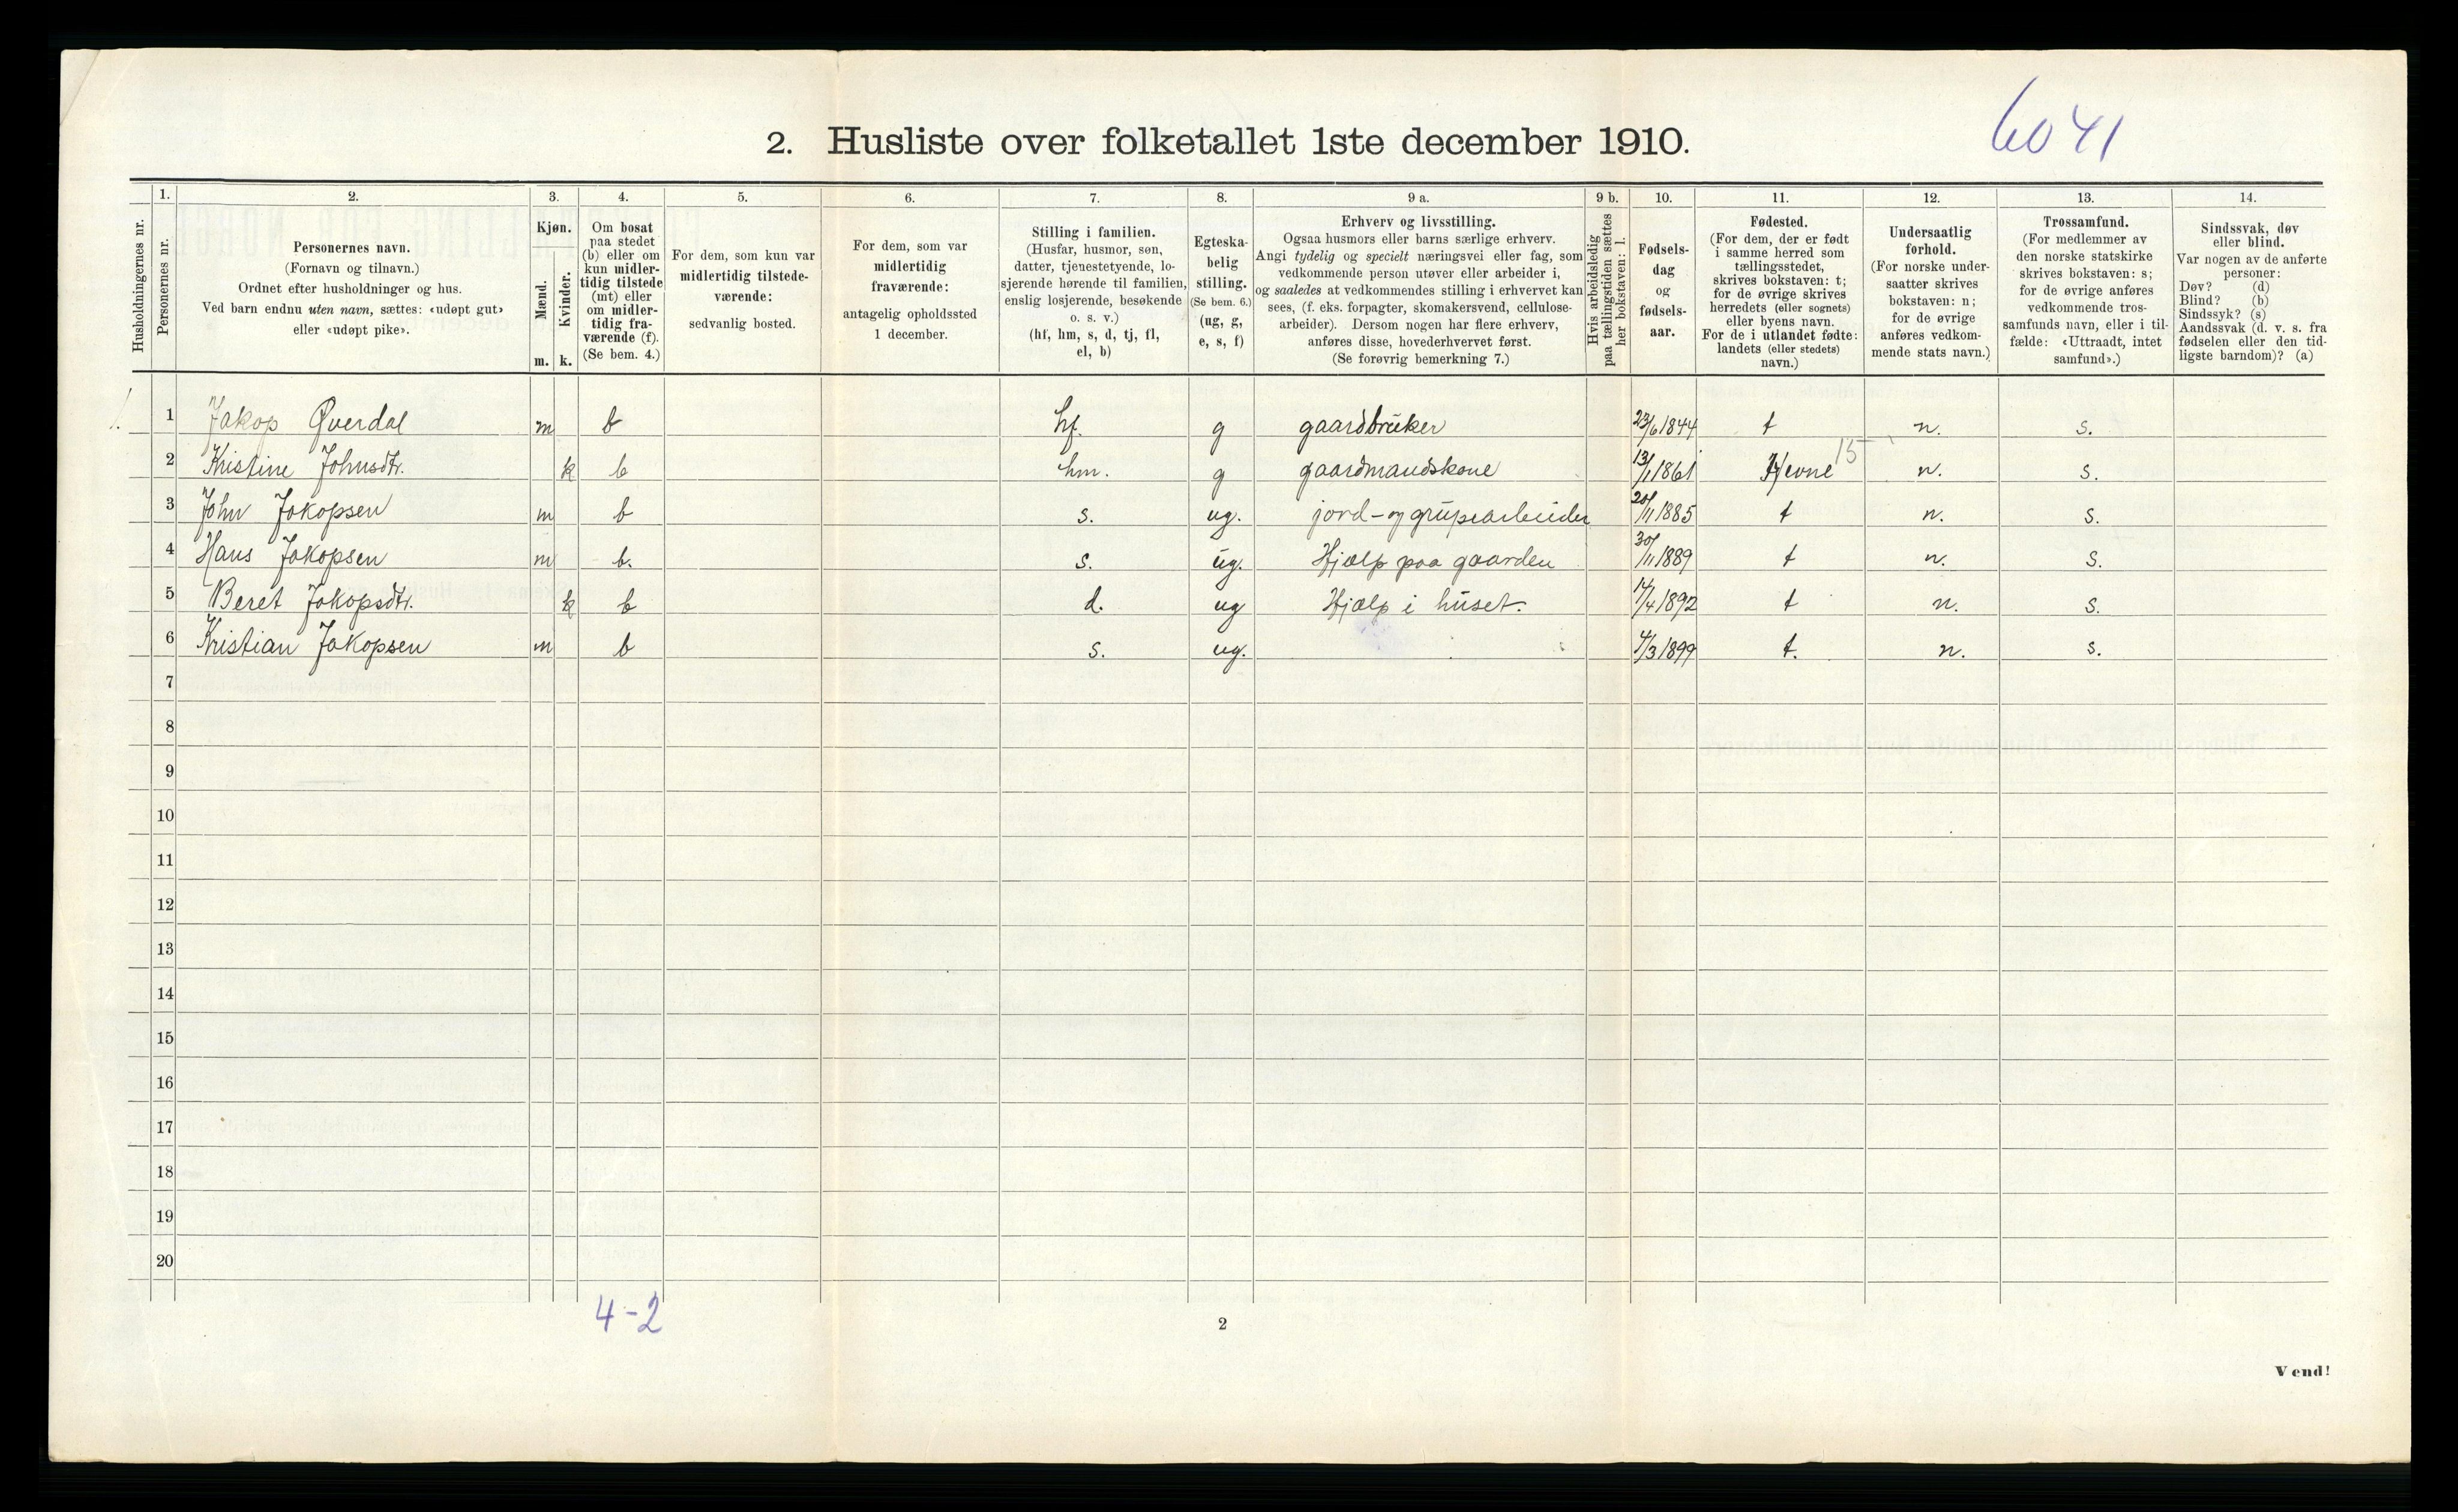 6041
2. Husliste over folketallet 1ste december 1910.
Husholdningernes nr.
1.
Personernes nr.
2.
Personernes navn.
(Fornavn og tilnavn.)
Ordnet efter husholdninger og hus.
Ved barn endnu uten navn, sættes: «udøpt gut»
eller «udøpt pike».
3.
Kjøn.
Mænd.
Kvinder.
m. k.
4.
Om bosat
paa stedet
(b) eller om
kun midler-
tidig tilstede
(mt) eller
om midler-
tidig fra-
værende (f).
(Se bem. 4.)
5.
For dem, som kun var
midlertidig tilstede-
værende:
sedvanlig bosted.
6.
For dem, som var
midlertidig
fraværende:
antagelig opholdssted
1 december.
7.
Stilling i familien.
(Husfar, husmor, søn,
datter, tjenestetyende, lo-
sjerende hørende til familien,
enslig losjerende, besøkende
o. s. v.)
(hf, hm, s, d, tj, fl,
el, b)
8.
Egteska-
belig
stilling.
(Se bem. 6.)
(ug, g,
e, s, f)
9 a.
Erhverv og livsstilling.
Ogsaa husmors eller barns særlige erhverv.
Angi tydelig og specielt næringsvei eller fag, som
vedkommende person utøver eller arbeider i,
og saaledes at vedkommendes stilling i erhvervet kan
sees, (f. eks. forpagter, skomakersvend, cellulose-
arbeider). Dersom nogen har flere erhverv,
anføres disse, hovederhvervet først.
(Se forøvrig bemerkning 7.)
9 b.
Hvis arbeidsledig
paa tællingstiden sættes
her bokstaven: l.
10.
Fødsels-
dag
og
fødsels-
aar.
11.
Fødested.
(For dem, der er født
i samme herred som
tællingsstedet,
skrives bokstaven: t;
for de øvrige skrives
herredets (eller sognets)
eller byens navn.
For de i utlandet fødte:
landets (eller stedets)
navn.)
12.
Undersaatlig
forhold.
(For norske under-
saatter skrives
bokstaven: n;
for de øvrige
anføres vedkom-
mende stats navn.)
13.
Trossamfund.
(For medlemmer av
den norske statskirke
skrives bokstaven: s;
for de øvrige anføres
vedkommende tros-
samfunds navn, eller i til-
fælde: «Uttraadt, intet
samfund».)
14.
Sindssvak, døv
eller blind.
Var nogen av de anførte
personer:
Døv? (d)
Blind? (b)
Sindssyk? (s)
Aandssvak (d. v. s. fra
fødselen eller den tid-
ligste barndom)? (a)
1. 1 Jakop Øverdal m b hf. g gaardbruker 23/6 1844 t n. s.
2 Kristine Johnsdtr. k b hm. g gaardmandskone 13/1 1861 Hevne 15 n. s.
3 John Jakopsen m b s. ug. jord- og 20/11 1885 t n. s.
4 Hans Jakopsen m b. s. ug. Hjælp paa gaarden 30/11 1889 t n. s.
5 Beret Jakopsdtr. k b d. ug Hjælp i huset. 14/4 1892 t n. s.
6 Kristian Jakopsen m b s. ug. 4/3 1899 t. n. s.
7
8
9
10
11
12
13
14
15
16
17
18
19
20
4-2
2
Vend!